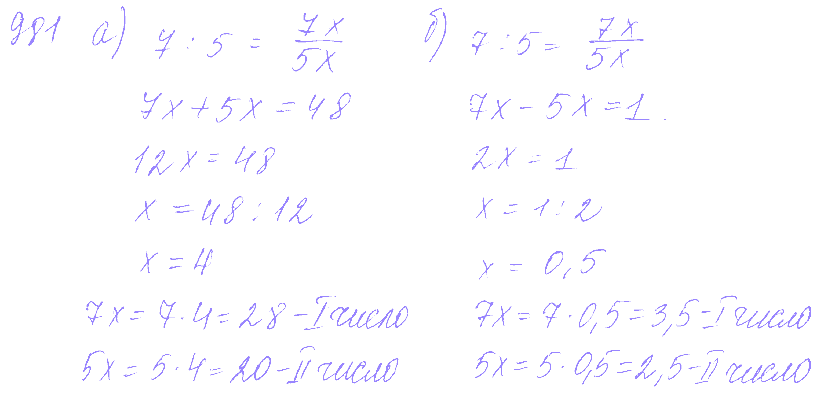 981 а) 7 : 5 = 7x/5x
7x + 5x = 48
12x = 48
x = 48 : 12
x = 4
7x = 7 · 4 = 28 – I число
5x = 5 · 4 = 20 – II число
б) 7 : 5 = 7x/5x
7x – 5x = 1.
2x = 1
x = 1 : 2
x = 0,5
7x = 7 · 0,5 = 3,5 – I число
5x = 5 · 0,5 = 2,5 – II число